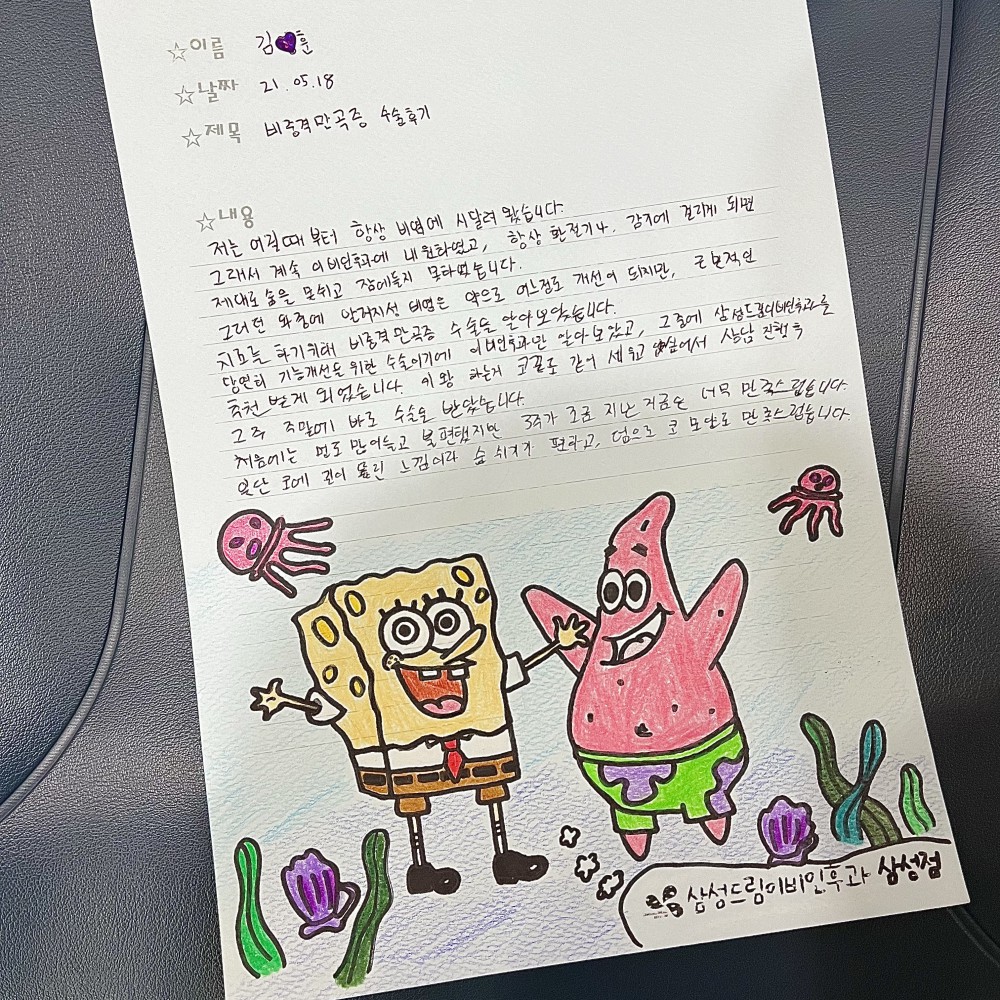 ☆이름 김💜훈
☆날짜 21.05.18
☆제목 비중격만곡증 수술후기
☆내용
저는 어릴때부터 항상 비염에 시달려 왔습니다.
그래서 계속 이비인후과에 내원하였고, 항상 환절기나, 감기에 걸리게 되면
제대로 숨을 못쉬고 잠에들지 못하였습니다.
그러던 와중에 알러지성 비염은 약으로 어느정도 개선이 되지만, 근본적인
치료를 하기위해 비중격만곡증 수술을 알아보았습니다.
당연히 기능개선을 위한 수술이기에 이비인후과만 알아보았고, 그중에 삼성드림이비인후과를
추천 받게 되었습니다. 이왕 하는거 코끝도 같이 세우고 싶어서 상담 진행 후
그 주 주말에 바로 수술을 받았습니다.
처음에는 멍도 많이들고 불편했지만 3주가 조금 지난 지금은 너무 만족스럽습니다.
일단 코에 길이 뚫린 느낌이라 숨 쉬기가 편하고, 덤으로 코 모양도 만족스럽습니다.
삼성드림이비인후과 삼성점